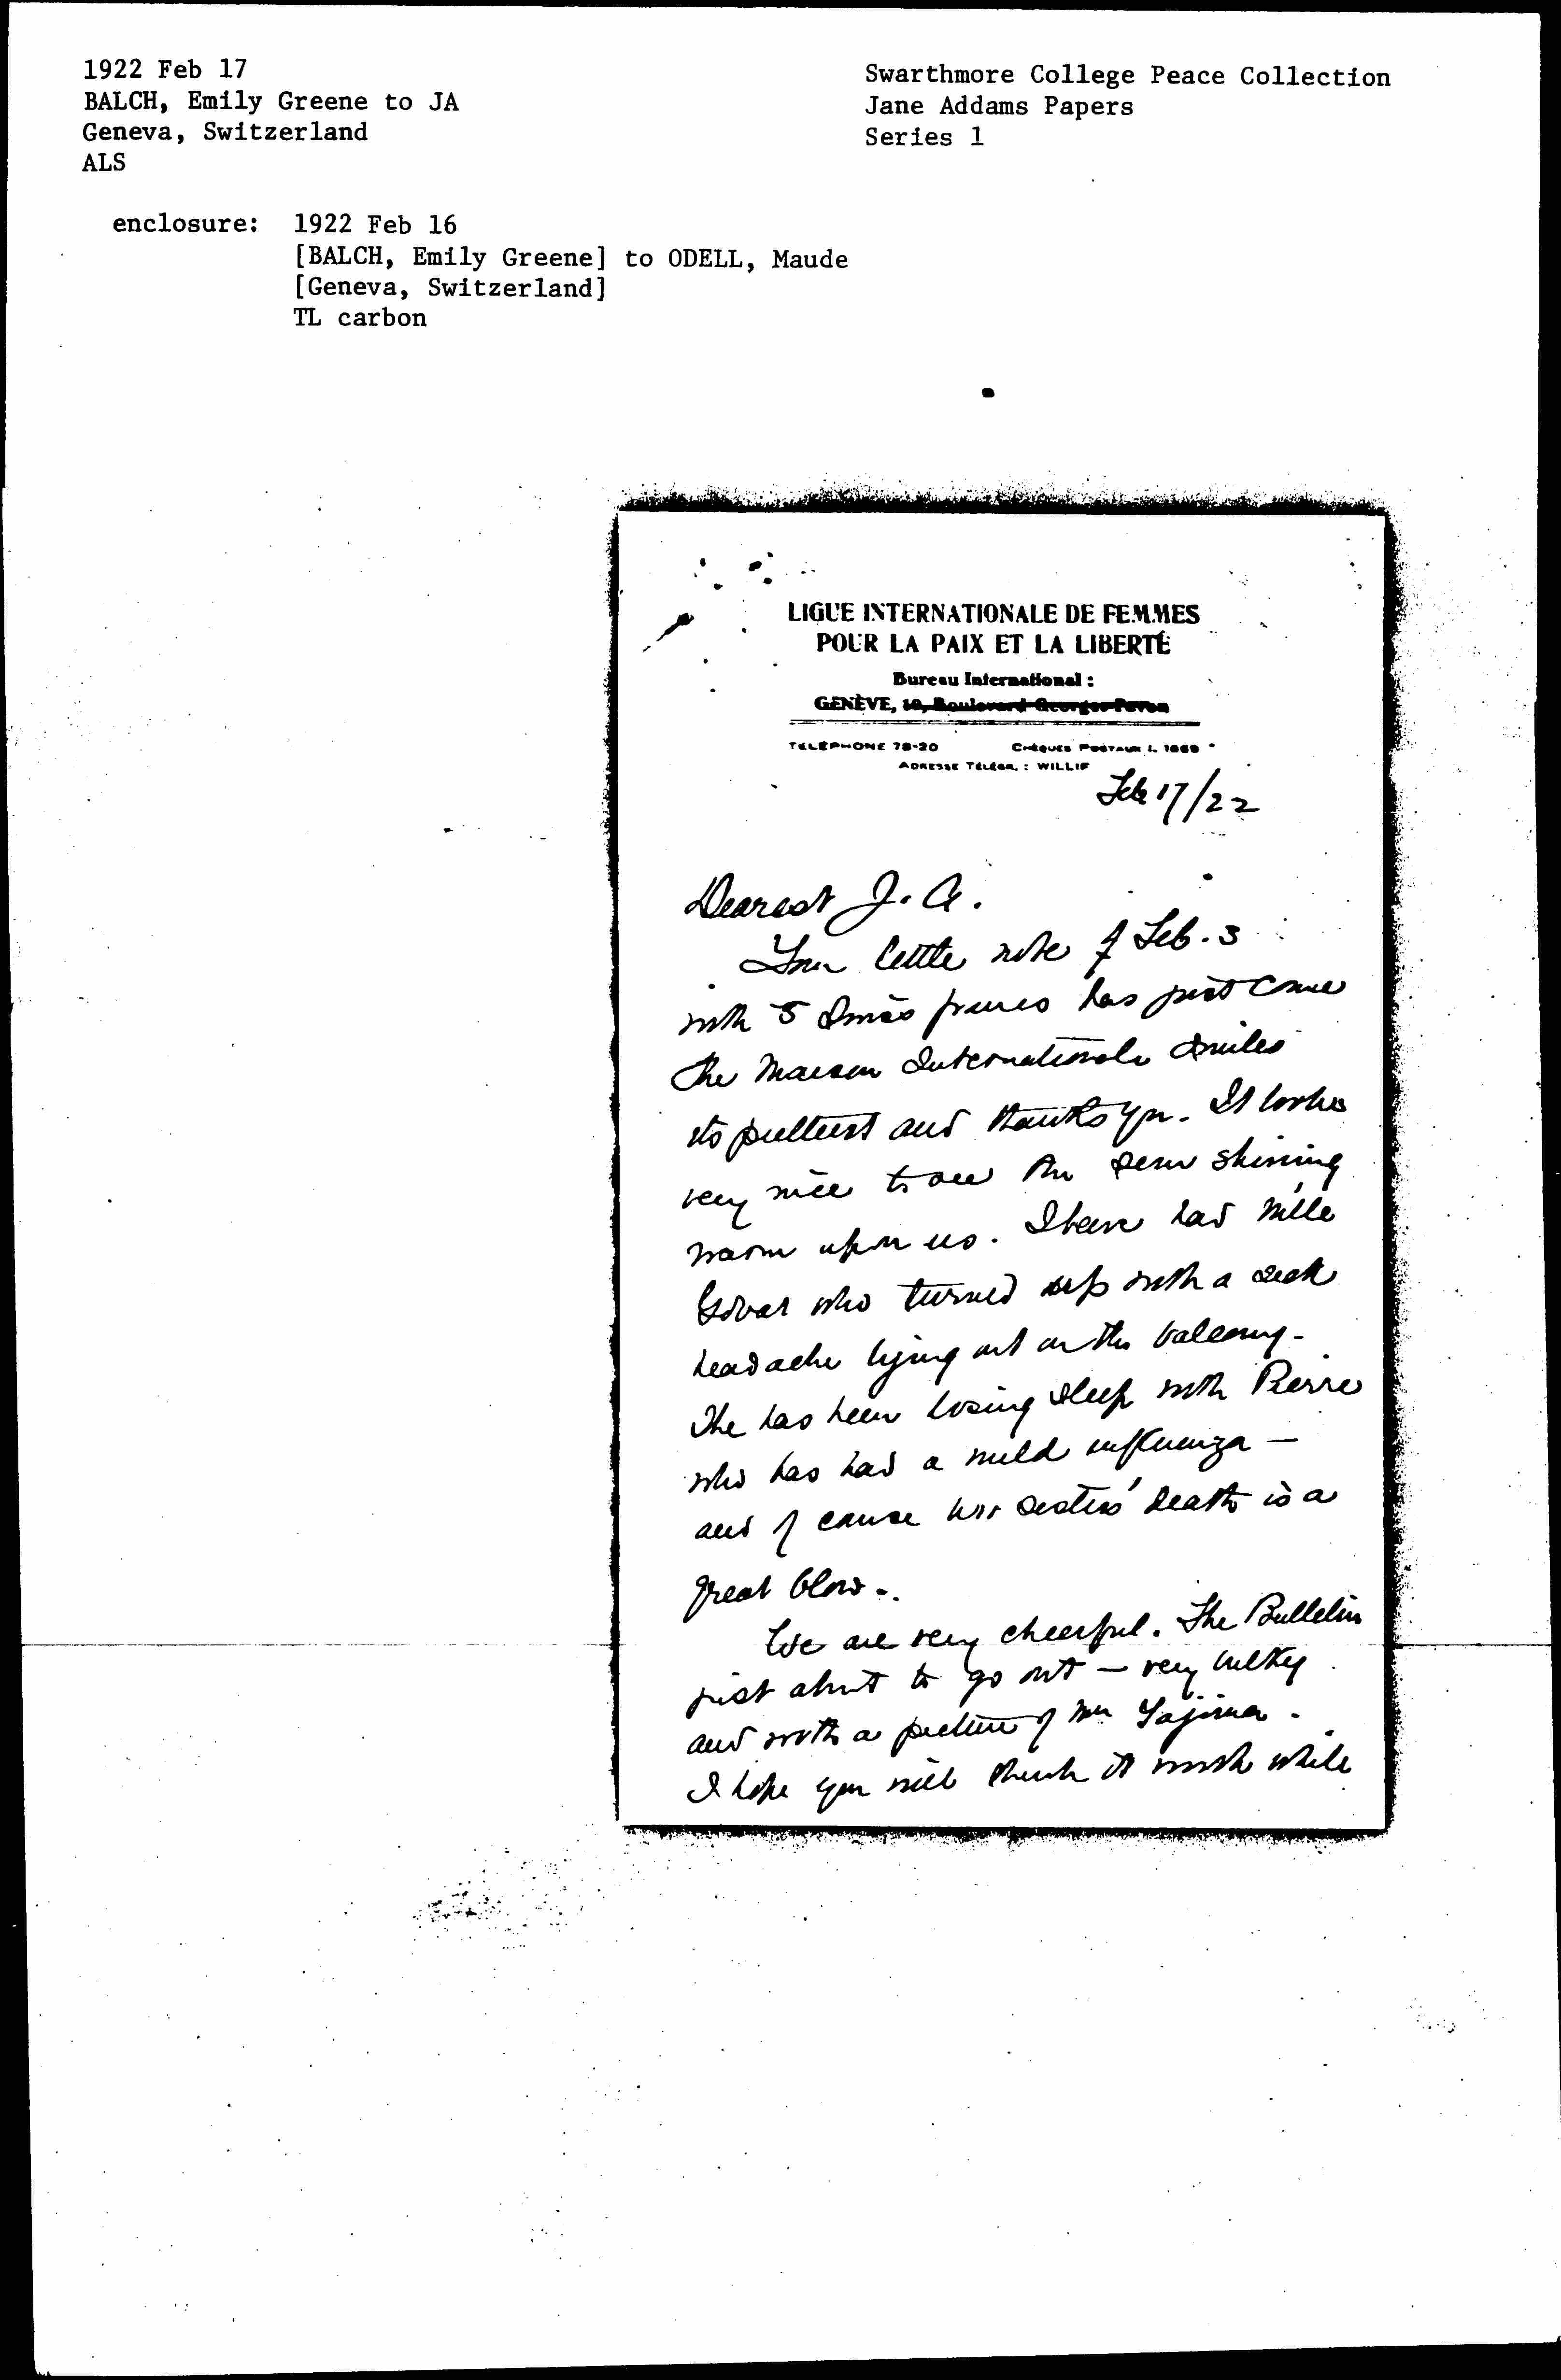 1922 Feb 17
BALCH, Emily Greene to JA
Geneva, Switzerland
ALS
enclosure: 1922 Feb 16
[BALCH, Emily Greene] to ODELL, Maude
[Geneva, Switzerland]
TL carbon
Swarthmore College Peace Collection
Jane Addams Papers
Series 1
LIGUE INTERNATIONALE DE FEMMES
POUR LA PAIX ET LA LIBERTÉ
Bureau International :
GENÈVE, 10, Boulevard Georges-Favon
TÉLÉPHONE 78-20 CHÈQUES POSTAUX I. 1869
ADRESSE TÉLÉGR. : WILLIF
Feb 17/22
Dearest J. A.
Your little note of Feb. 3
with 5 francs has just come
The Maison Internationale smiles
its prettiest and thanks you. It looks
very nice to see the sun shining
warm upon us. I have had Mlle
Gobat who turned up with a sick
headache lying out on the balcony -
She has been losing sleep with Pierre
who has had a mild influenza -
and of course her sister's death is a
great blow -
We are very cheerful. The Bulletin
just about to go out - very bulky
and with a picture of Mme Yajima -
I hope you will think it worth while